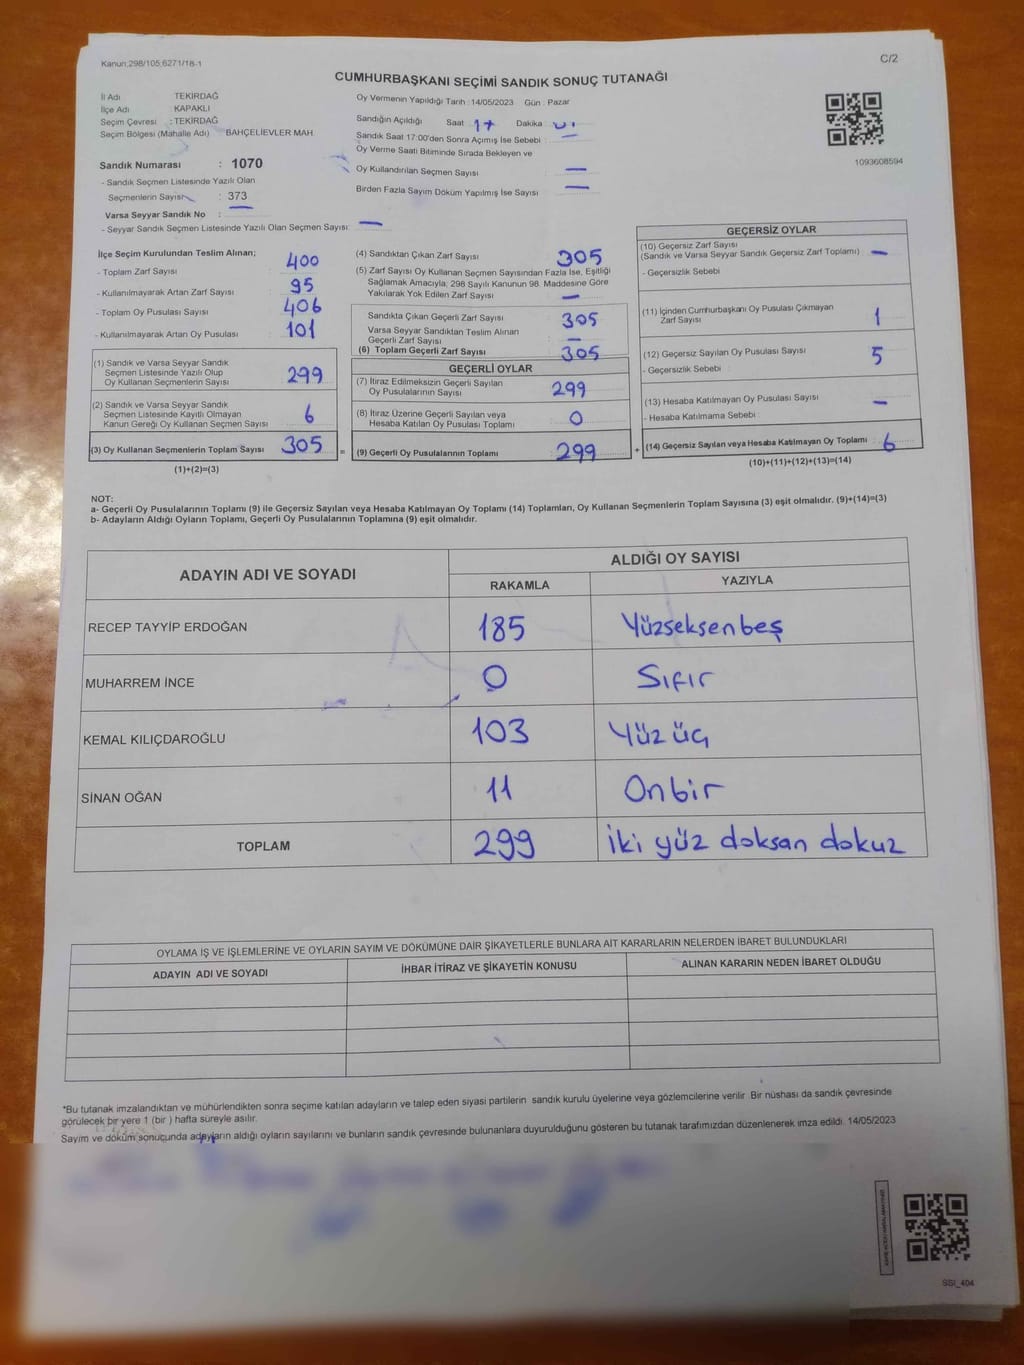 Kanun;298/105,6271/18-1
C/2
CUMHURBAŞKANI SEÇİMİ SANDIK SONUÇ TUTANAĞI
İl Adı TEKİRDAĞ
İlçe Adı KAPAKLI
Seçim Çevresi : TEKİRDAĞ
Seçim Bölgesi (Mahalle Adı) BAHÇELİEVLER MAH.
Sandık Numarası : 1070
- Sandık Seçmen Listesinde Yazılı Olan
Seçmenlerin Sayısı : 373
Varsa Seyyar Sandık No : —
- Seyyar Sandık Seçmen Listesinde Yazılı Olan Seçmen Sayısı: —
Oy Vermenin Yapıldığı Tarih :14/05/2023 Gün : Pazar
Sandığın Açıldığı Saat 17 Dakika
Sandık Saat 17:00'den Sonra Açımış İse Sebebi : —
Oy Verme Saati Bitiminde Sırada Bekleyen ve
Oy Kullandırılan Seçmen Sayısı : —
Birden Fazla Sayım Döküm Yapılmış İse Sayısı : —
1093608594
İlçe Seçim Kurulundan Teslim Alınan;
- Toplam Zarf Sayısı : 400
- Kullanılmayarak Artan Zarf Sayısı : 95
- Toplam Oy Pusulası Sayısı : 406
- Kullanılmayarak Artan Oy Pusulası : 101
(1) Sandık ve Varsa Seyyar Sandık
Seçmen Listesinde Yazılı Olup
Oy Kullanan Seçmenlerin Sayısı : 299
(2) Sandık ve Varsa Seyyar Sandık
Seçmen Listesinde Kayıtlı Olmayan
Kanun Gereği Oy Kullanan Seçmen Sayısı : 6
(3) Oy Kullanan Seçmenlerin Toplam Sayısı : 305 =
(1)+(2)=(3)
(4) Sandıktan Çıkan Zarf Sayısı : 305
(5) Zarf Sayısı Oy Kullanan Seçmen Sayısından Fazla İse, Eşitliği
Sağlamak Amacıyla, 298 Sayılı Kanunun 98. Maddesine Göre
Yakılarak Yok Edilen Zarf Sayısı : —
Sandıkta Çıkan Geçerli Zarf Sayısı : 305
Varsa Seyyar Sandıktan Teslim Alınan
Geçerli Zarf Sayısı : —
(6) Toplam Geçerli Zarf Sayısı : 305
GEÇERLİ OYLAR
(7) İtiraz Edilmeksizin Geçerli Sayılan
Oy Pusulalarının Sayısı : 299
(8) İtiraz Üzerine Geçerli Sayılan veya
Hesaba Katılan Oy Pusulası Toplamı : 0
(9) Geçerli Oy Pusulalarının Toplamı : 299 +
GEÇERSİZ OYLAR
(10) Geçersiz Zarf Sayısı
(Sandık ve Varsa Seyyar Sandık Geçersiz Zarf Toplamı) : —
- Geçersizlik Sebebi :
(11) İçinden Cumhurbaşkanı Oy Pusulası Çıkmayan
Zarf Sayısı : 1
(12) Geçersiz Sayılan Oy Pusulası Sayısı : 5
- Geçersizlik Sebebi :
(13) Hesaba Katılmayan Oy Pusulası Sayısı : —
- Hesaba Katılmama Sebebi :
(14) Geçersiz Sayılan veya Hesaba Katılmayan Oy Toplamı : 6
(10)+(11)+(12)+(13)=(14)
NOT:
a- Geçerli Oy Pusulalarının Toplamı (9) ile Geçersiz Sayılan veya Hesaba Katılmayan Oy Toplamı (14) Toplamları, Oy Kullanan Seçmenlerin Toplam Sayısına (3) eşit olmalıdır. (9)+(14)=(3)
b- Adayların Aldığı Oyların Toplamı, Geçerli Oy Pusulalarının Toplamına (9) eşit olmalıdır.
ADAYIN ADI VE SOYADI ALDIĞI OY SAYISI
RAKAMLA YAZIYLA
RECEP TAYYİP ERDOĞAN 185 Yüzseksenbeş
MUHARREM İNCE 0 Sıfır
KEMAL KILIÇDAROĞLU 103 Yüz üç
SİNAN OĞAN 11 Onbir
TOPLAM 299 iki yüz doksan dokuz
OYLAMA İŞ VE İŞLEMLERİNE VE OYLARIN SAYIM VE DÖKÜMÜNE DAİR ŞİKAYETLERLE BUNLARA AİT KARARLARIN NELERDEN İBARET BULUNDUKLARI
ADAYIN ADI VE SOYADI İHBAR İTİRAZ VE ŞİKAYETİN KONUSU ALINAN KARARIN NEDEN İBARET OLDUĞU
*Bu tutanak imzalandıktan ve mühürlendikten sonra seçime katılan adayların ve talep eden siyasi partilerin sandık kurulu üyelerine veya gözlemcilerine verilir. Bir nüshası da sandık çevresinde
görülecek bir yere 1 (bir ) hafta süreyle asılır.
Sayım ve döküm sonucunda adayların aldığı oyların sayılarını ve bunların sandık çevresinde bulunanlara duyurulduğunu gösteren bu tutanak tarafımızdan düzenlenerek imza edildi. 14/05/2023
SSI_404